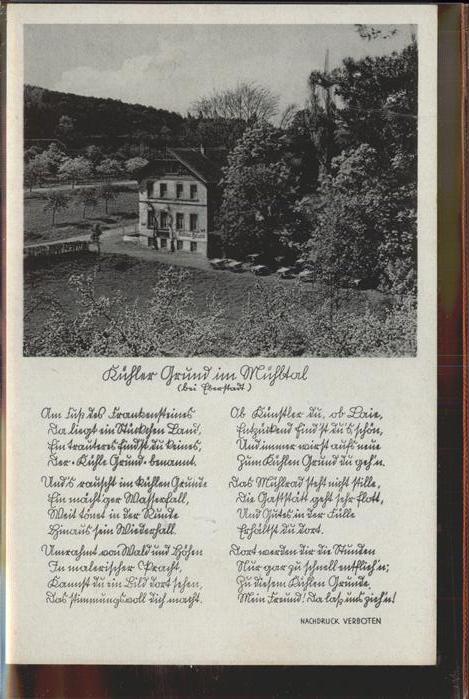 Kühler Grund im Mühltal
(bei Eberstadt)
Am Fuß des Frankensteines
Da liegt ein Stückchen Land,
Ein trauteres find'st du keines,
Der "Kühle Grund" benannt.
Und's rauscht im kühlen Grunde
Ein mächt'ger Wasserfall,
Weit tönet in der Runde
Hinaus sein Wiederhall.
Umrahmt von Wald und Höhen
In malerischer Pracht,
Kannst du ein Bild dort sehen,
Das stimmungsvoll dich macht.
Ob Künstler du, ob Laie,
Entzückend find'st du's schön,
Und immer wirst aufs neue
Zum Kühlen Grund du geh'n.
Das Mühlrad steht nicht stille,
Die Gaststätt geht sehr flott,
Und Gutes in der Fülle
Erhältst du dort.
Dort werden dir die Stunden
Nur gar zu schnell entflieh'n;
Zu diesem Kühlen Grunde,
Mein Freund! Da laß uns zieh'n!
NACHDRUCK VERBOTEN